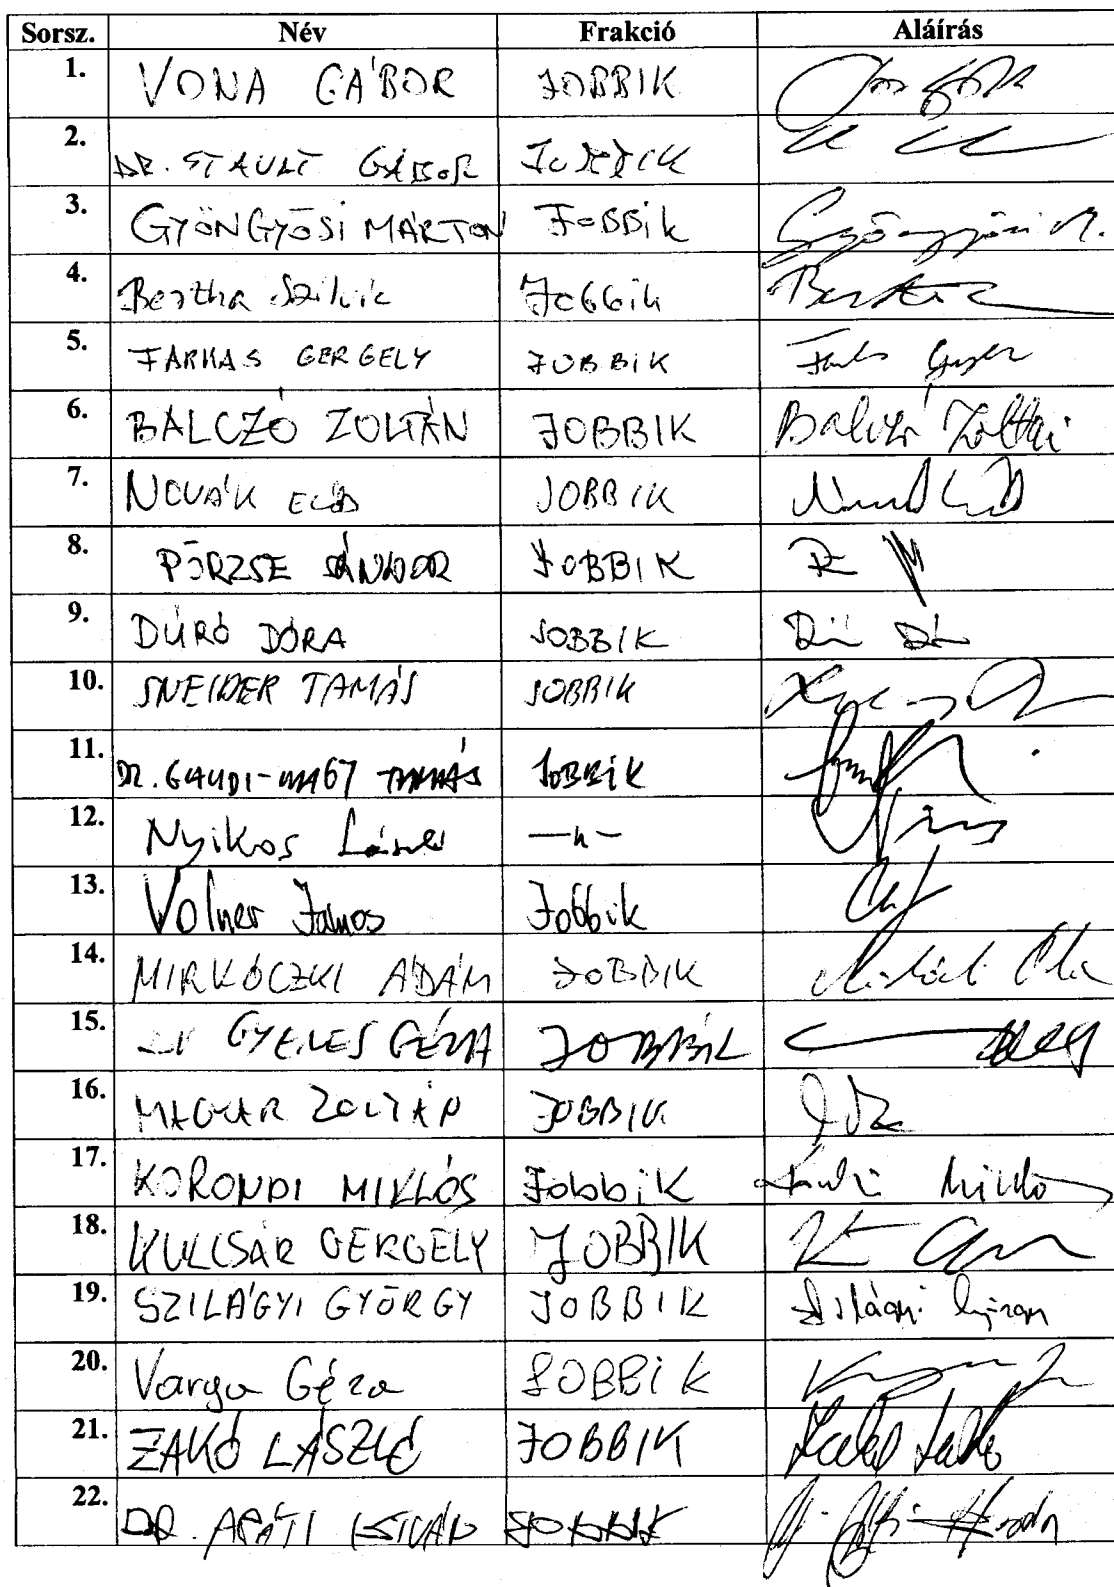 Sorsz. Név Frakció Aláírás
1. VONA GÁBOR JOBBIK
2. DR. STAUDT GÁBOR JOBBIK
3. GYÖNGYÖSI MÁRTON JOBBIK Gyöngyösi M.
4. Bertha Szilvia Jobbik Bertha
5. FARKAS GERGELY JOBBIK
6. BALCZÓ ZOLTÁN JOBBIK Balczó Zoltán
7. NOVÁK ELŐD JOBBIK
8. PŐRZSE SÁNDOR JOBBIK
9. DÚRÓ DÓRA JOBBIK
10. SNEIDER TAMÁS JOBBIK
11. DR. GAUDI-NAGY TAMÁS JOBBIK
12. Nyikos László —"—
13. Volner János Jobbik
14. MIRKÓCZKI ÁDÁM JOBBIK
15. GYENES GÉZA JOBBIK
16. MAGYAR ZOLTÁN JOBBIK
17. KORONDI MIKLÓS Jobbik Miklós
18. KULCSÁR GERGELY JOBBIK
19. SZILÁGYI GYÖRGY JOBBIK Szilágyi György
20. Varga Géza JOBBIK
21. ZAKÓ LÁSZLÓ JOBBIK
22. DR. APÁTI ISTVÁN JOBBIK